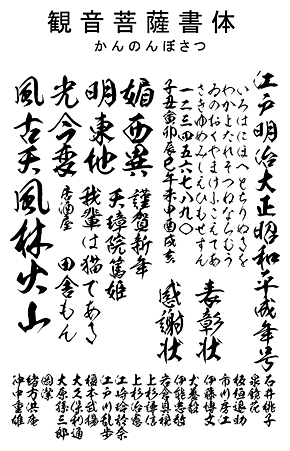 観音菩薩書体
かんのんぼさつ
江戸明治大正昭和平成年号
いろはにほへとちりぬるを
わかよたれそつねならむう
ゐのおくやまけふこえてあ
さきゆめみしえひもせすん
一二三四五六七八九〇
子丑寅卯辰巳午未申酉戌亥
表彰状
感謝状
媚西異
謹賀新年
天璋院篤姫
明東他
我輩は猫である
光今変
居酒屋
田舎もん
風古天
風林火山
石井桃子
泉鏡花
板垣退助
市川房江
伊藤博文
犬養毅
伊能忠敬
岩倉具視
上杉謙信
上杉治憲
江崎玲於奈
江戸川乱歩
榎本武揚
大久保利通
大原孫三郎
岡潔
緒方洪庵
沖中重雄